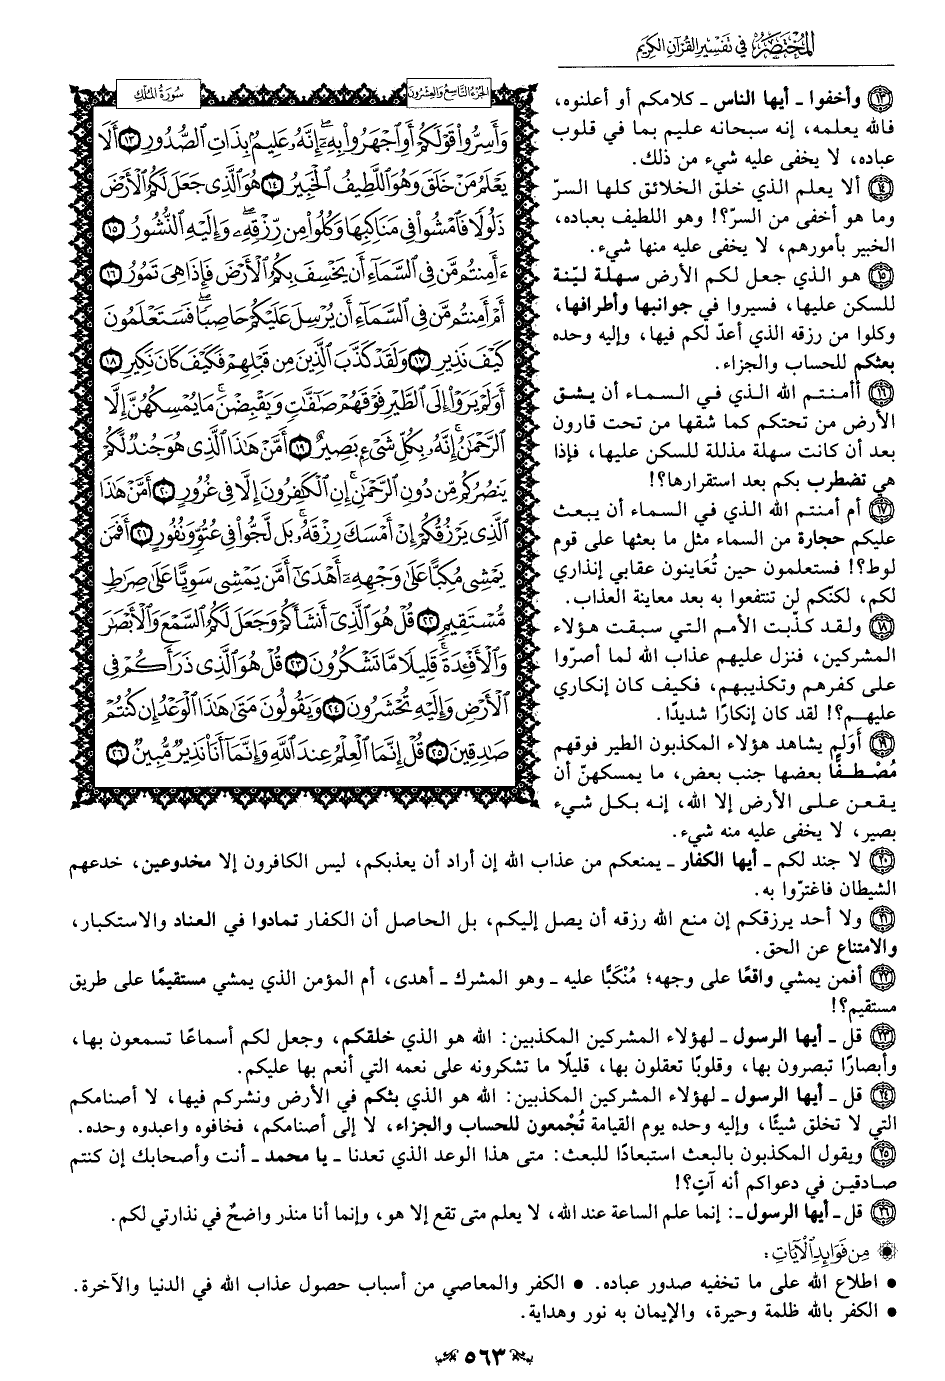 المختصر في تفسير القرآن الكريم
الجزء التاسع والعشرون
سورة الملك
وَأَسِرُّوا۟ قَوْلَكُمْ أَوِ ٱجْهَرُوا۟ بِهِۦٓ إِنَّهُۥ عَلِيمٌۢ بِذَاتِ ٱلصُّدُورِ ١٣ أَلَا
يَعْلَمُ مَنْ خَلَقَ وَهُوَ ٱللَّطِيفُ ٱلْخَبِيرُ ١٤ هُوَ ٱلَّذِى جَعَلَ لَكُمُ ٱلْأَرْضَ
ذَلُولًا فَٱمْشُوا۟ فِى مَنَاكِبِهَا وَكُلُوا۟ مِن رِّزْقِهِۦ وَإِلَيْهِ ٱلنُّشُورُ ١٥
ءَأَمِنتُم مَّن فِى ٱلسَّمَآءِ أَن يَخْسِفَ بِكُمُ ٱلْأَرْضَ فَإِذَا هِىَ تَمُورُ ١٦
أَمْ أَمِنتُم مَّن فِى ٱلسَّمَآءِ أَن يُرْسِلَ عَلَيْكُمْ حَاصِبًا فَسَتَعْلَمُونَ
كَيْفَ نَذِيرِ ١٧ وَلَقَدْ كَذَّبَ ٱلَّذِينَ مِن قَبْلِهِمْ فَكَيْفَ كَانَ نَكِيرِ ١٨
أَوَلَمْ يَرَوْا۟ إِلَى ٱلطَّيْرِ فَوْقَهُمْ صَٰٓفَّٰتٍ وَيَقْبِضْنَ مَا يُمْسِكُهُنَّ إِلَّا
ٱلرَّحْمَٰنُ إِنَّهُۥ بِكُلِّ شَىْءٍۭ بَصِيرٌ ١٩ أَمَّنْ هَٰذَا ٱلَّذِى هُوَ جُندٌ لَّكُمْ
يَنصُرُكُم مِّن دُونِ ٱلرَّحْمَٰنِ إِنِ ٱلْكَٰفِرُونَ إِلَّا فِى غُرُورٍ ٢٠ أَمَّنْ هَٰذَا
ٱلَّذِى يَرْزُقُكُمْ إِنْ أَمْسَكَ رِزْقَهُۥ بَل لَّجُّوا۟ فِى عُتُوٍّ وَنُفُورٍ ٢١ أَفَمَن
يَمْشِى مُكِبًّا عَلَىٰ وَجْهِهِۦٓ أَهْدَىٰٓ أَمَّن يَمْشِى سَوِيًّا عَلَىٰ صِرَٰطٍ
مُّسْتَقِيمٍ ٢٢ قُلْ هُوَ ٱلَّذِىٓ أَنشَأَكُمْ وَجَعَلَ لَكُمُ ٱلسَّمْعَ وَٱلْأَبْصَٰرَ
وَٱلْأَفْـِٔدَةَ قَلِيلًا مَّا تَشْكُرُونَ ٢٣ قُلْ هُوَ ٱلَّذِى ذَرَأَكُمْ فِى
ٱلْأَرْضِ وَإِلَيْهِ تُحْشَرُونَ ٢٤ وَيَقُولُونَ مَتَىٰ هَٰذَا ٱلْوَعْدُ إِن كُنتُمْ
صَٰدِقِينَ ٢٥ قُلْ إِنَّمَا ٱلْعِلْمُ عِندَ ٱللَّهِ وَإِنَّمَآ أَنَا۠ نَذِيرٌ مُّبِينٌ ٢٦
١٣ وأخفوا ـ أيها الناس ـ كلامكم أو أعلنوه،
فالله يعلمه، إنه سبحانه عليم بما في قلوب
عباده، لا يخفى عليه شيء من ذلك.
١٤ ألا يعلم الذي خلق الخلائق كلها السرّ
وما هو أخفى من السرّ؟! وهو اللطيف بعباده،
الخبير بأمورهم، لا يخفى عليه منها شيء.
١٥ هو الذي جعل لكم الأرض سهلة ليّنة
للسكن عليها، فسيروا في جوانبها وأطرافها،
وكلوا من رزقه الذي أعدّ لكم فيها، وإليه وحده
بعثكم للحساب والجزاء.
١٦ أأمنتم الله الذي في السماء أن يشق
الأرض من تحتكم كما شقها من تحت قارون
بعد أن كانت سهلة مذللة للسكن عليها، فإذا
هي تضطرب بكم بعد استقرارها؟!
١٧ أم أمنتم الله الذي في السماء أن يبعث
عليكم حجارة من السماء مثل ما بعثها على قوم
لوط؟! فستعلمون حين تُعَاينون عقابي إنذاري
لكم، لكنّكم لن تنتفعوا به بعد معاينة العذاب.
١٨ ولقد كذبت الأمم التي سبقت هؤلاء
المشركين، فنزل عليهم عذاب الله لما أصرّوا
على كفرهم وتكذيبهم، فكيف كان إنكاري
عليهم؟! لقد كان إنكارًا شديدًا.
١٩ أَوَلم يشاهد هؤلاء المكذبون الطير فوقهم
مُصْطفًّا بعضها جنب بعض، ما يمسكهنّ أن
يقعن على الأرض إلا الله، إنه بكل شيء
بصير، لا يخفى عليه منه شيء.
٢٠ لا جند لكم ـ أيها الكفار ـ يمنعكم من عذاب الله إن أراد أن يعذبكم، ليس الكافرون إلا مخدوعين، خدعهم
الشيطان فاغترّوا به.
٢١ ولا أحد يرزقكم إن منع الله رزقه أن يصل إليكم، بل الحاصل أن الكفار تمادوا في العناد والاستكبار،
والامتناع عن الحق.
٢٢ أفمن يمشي واقعًا على وجهه؛ مُنْكَبًّا عليه ـ وهو المشرك ـ أهدى، أم المؤمن الذي يمشي مستقيمًا على طريق
مستقيم؟!
٢٣ قل ـ أيها الرسول ـ لهؤلاء المشركين المكذبين: الله هو الذي خلقكم، وجعل لكم أسماعًا تسمعون بها،
وأبصارًا تبصرون بها، وقلوبًا تعقلون بها، قليلًا ما تشكرونه على نعمه التي أنعم بها عليكم.
٢٤ قل ـ أيها الرسول ـ لهؤلاء المشركين المكذبين: الله هو الذي بثكم في الأرض ونشركم فيها، لا أصنامكم
التي لا تخلق شيئًا، وإليه وحده يوم القيامة تُجْمعون للحساب والجزاء، لا إلى أصنامكم، فخافوه واعبدوه وحده.
٢٥ ويقول المكذبون بالبعث استبعادًا للبعث: متى هذا الوعد الذي تعدنا ـ يا محمد ـ أنت وأصحابك إن كنتم
صادقين في دعواكم أنه آتٍ؟!
٢٦ قل ـ أيها الرسول ـ: إنما علم الساعة عند الله، لا يعلم متى تقع إلا هو، وإنما أنا منذر واضحٌ في نذارتي لكم.
من فوائد الآيات:
• اطلاع الله على ما تخفيه صدور عباده. • الكفر والمعاصي من أسباب حصول عذاب الله في الدنيا والآخرة.
• الكفر بالله ظلمة وحيرة، والإيمان به نور وهداية.
٥٦٣